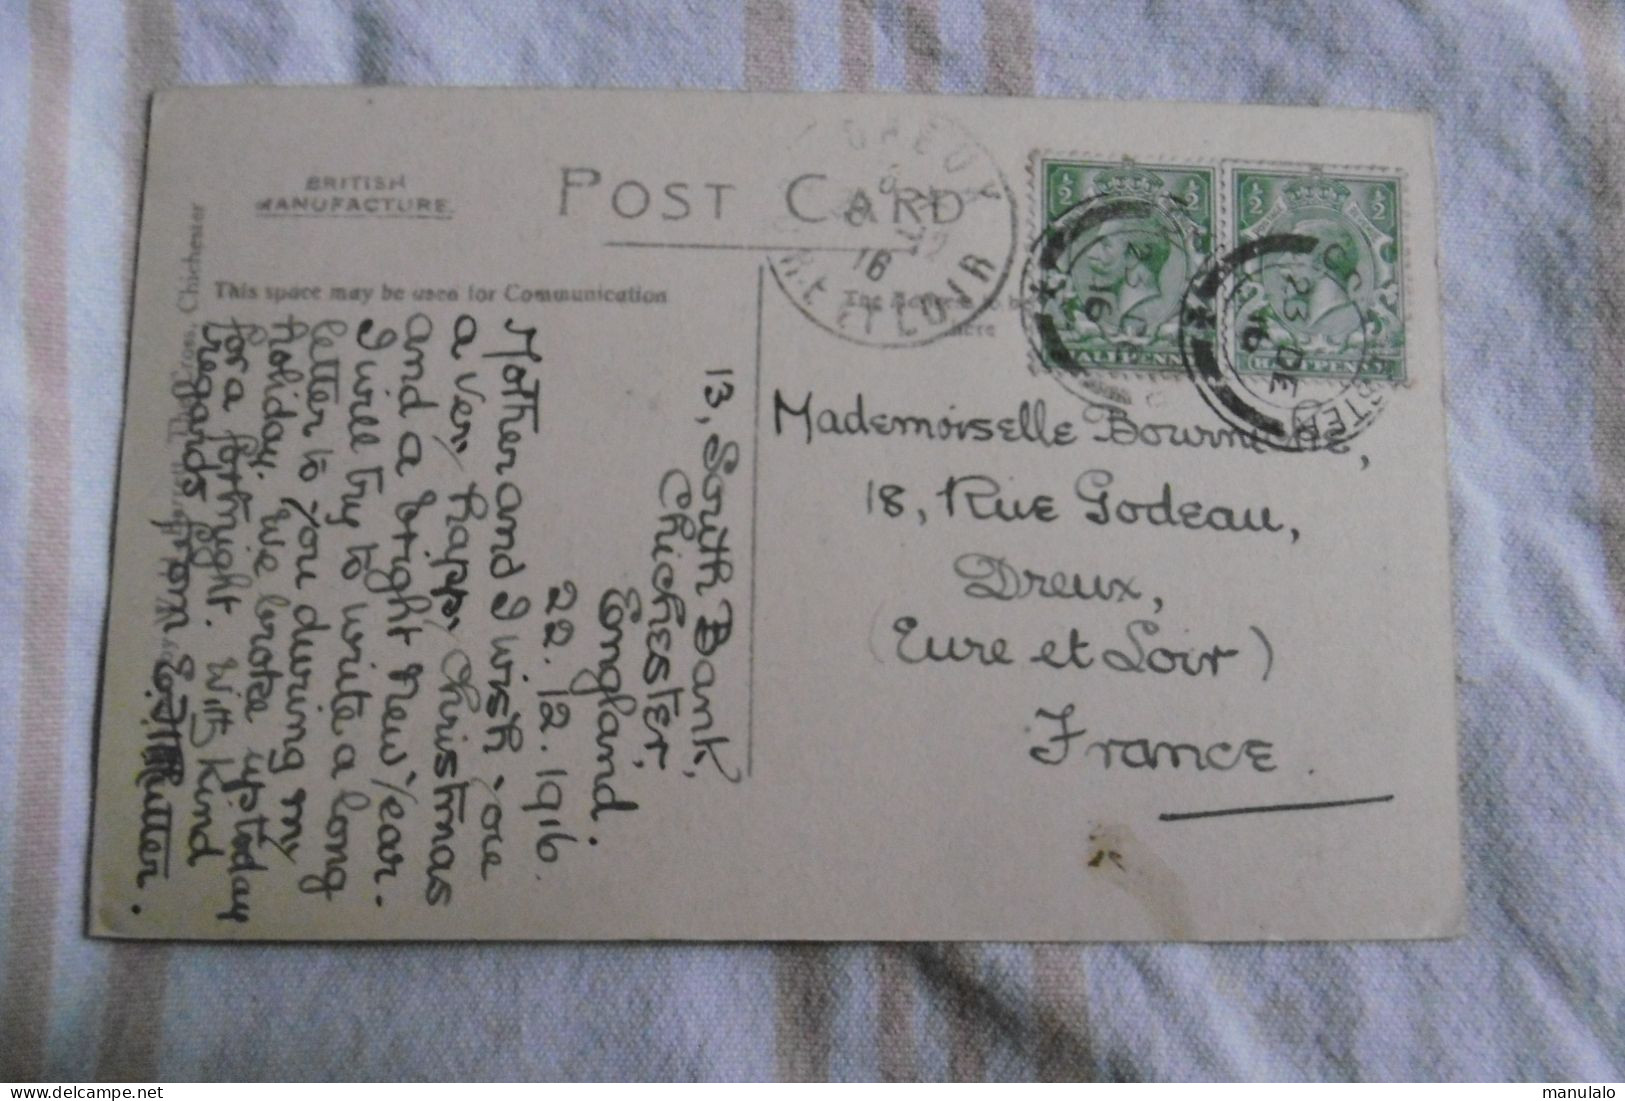 BRITISH
MANUFACTURE
POST CARD
This space may be used for Communication
13, South Bank,
Chichester,
England.
22.12.1916.
Mother and I wish you
a very happy Christmas
and a bright New Year.
I will try to write a long
letter to you during my
holiday. We broke up today
for a fortnight. With kind
regards from E. Rutter.
Cross, Chichester
Mademoiselle
18, Rue Godeau,
Dreux,
(Eure et Loir)
France.
DREUX
16
ET LOIR
½ ½
HALFPENNY
23 DE
16
½ ½
HALFPENNY
23 DE
16
manulalo